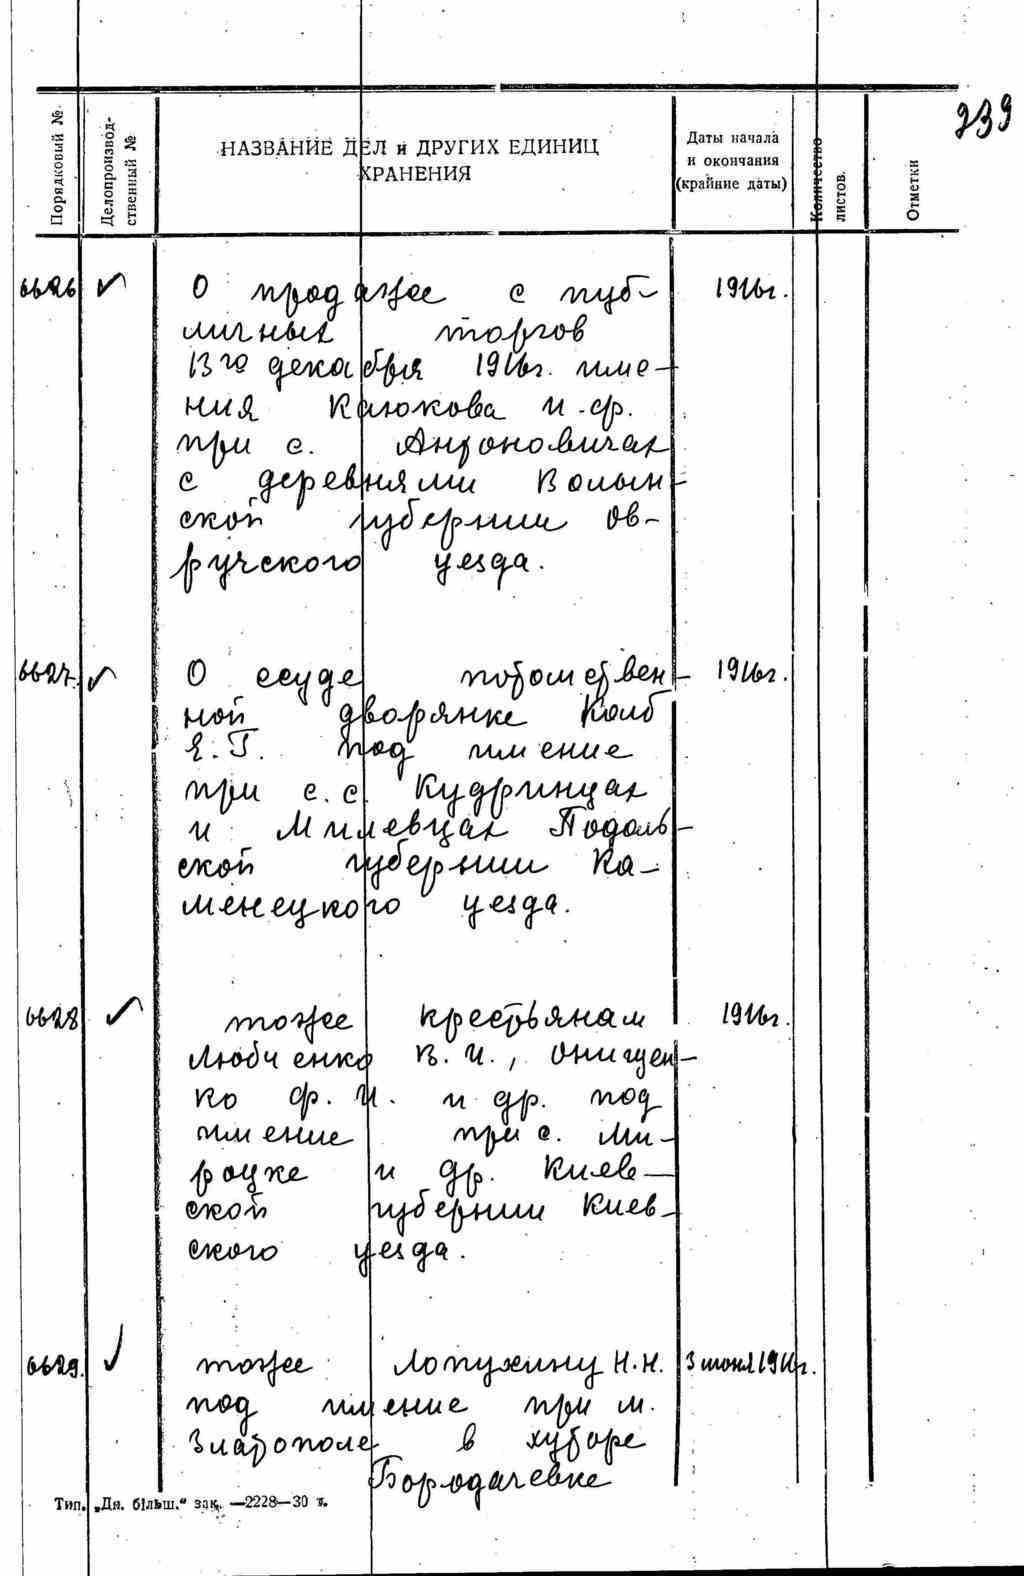 239
Порядковый №.
Делопроизвод-
ственный №
НАЗВАНИЕ ДЕЛ и ДРУГИХ ЕДИНИЦ
ХРАНЕНИЯ
Даты начала
и окончания
(крайние даты)
Количество
листов.
Отметки
6626 ✓ О продаже с пуб- 1916г.
личных торгов
13го декабря 1916г. име-
ния Каюкова и др.
при с. Антоновичах
с деревнями Волын-
ской губернии Ов-
ручского уезда.
6627. ✓ О ссуде потомствен- 1916г.
ной дворянке Колб
Е.Г. под имение
при с.с. Кудринцах
и Милевцах Подоль-
ской губернии Ка-
менецкого уезда.
6628 ✓ тоже крестьянам 1916г.
Любченко В.И., Онищен-
ко Ф.И. и др. под
имение при с. Ми-
роцке и др. Киев-
ской губернии Киев-
ского уезда.
6629. ✓ тоже Лопухину Н.Н. 3 июня 1911г.
под имение при м.
Златополе в хуторе
Бородачевке
Тип. „Дн. більш.“ зак. —2228—30 т.